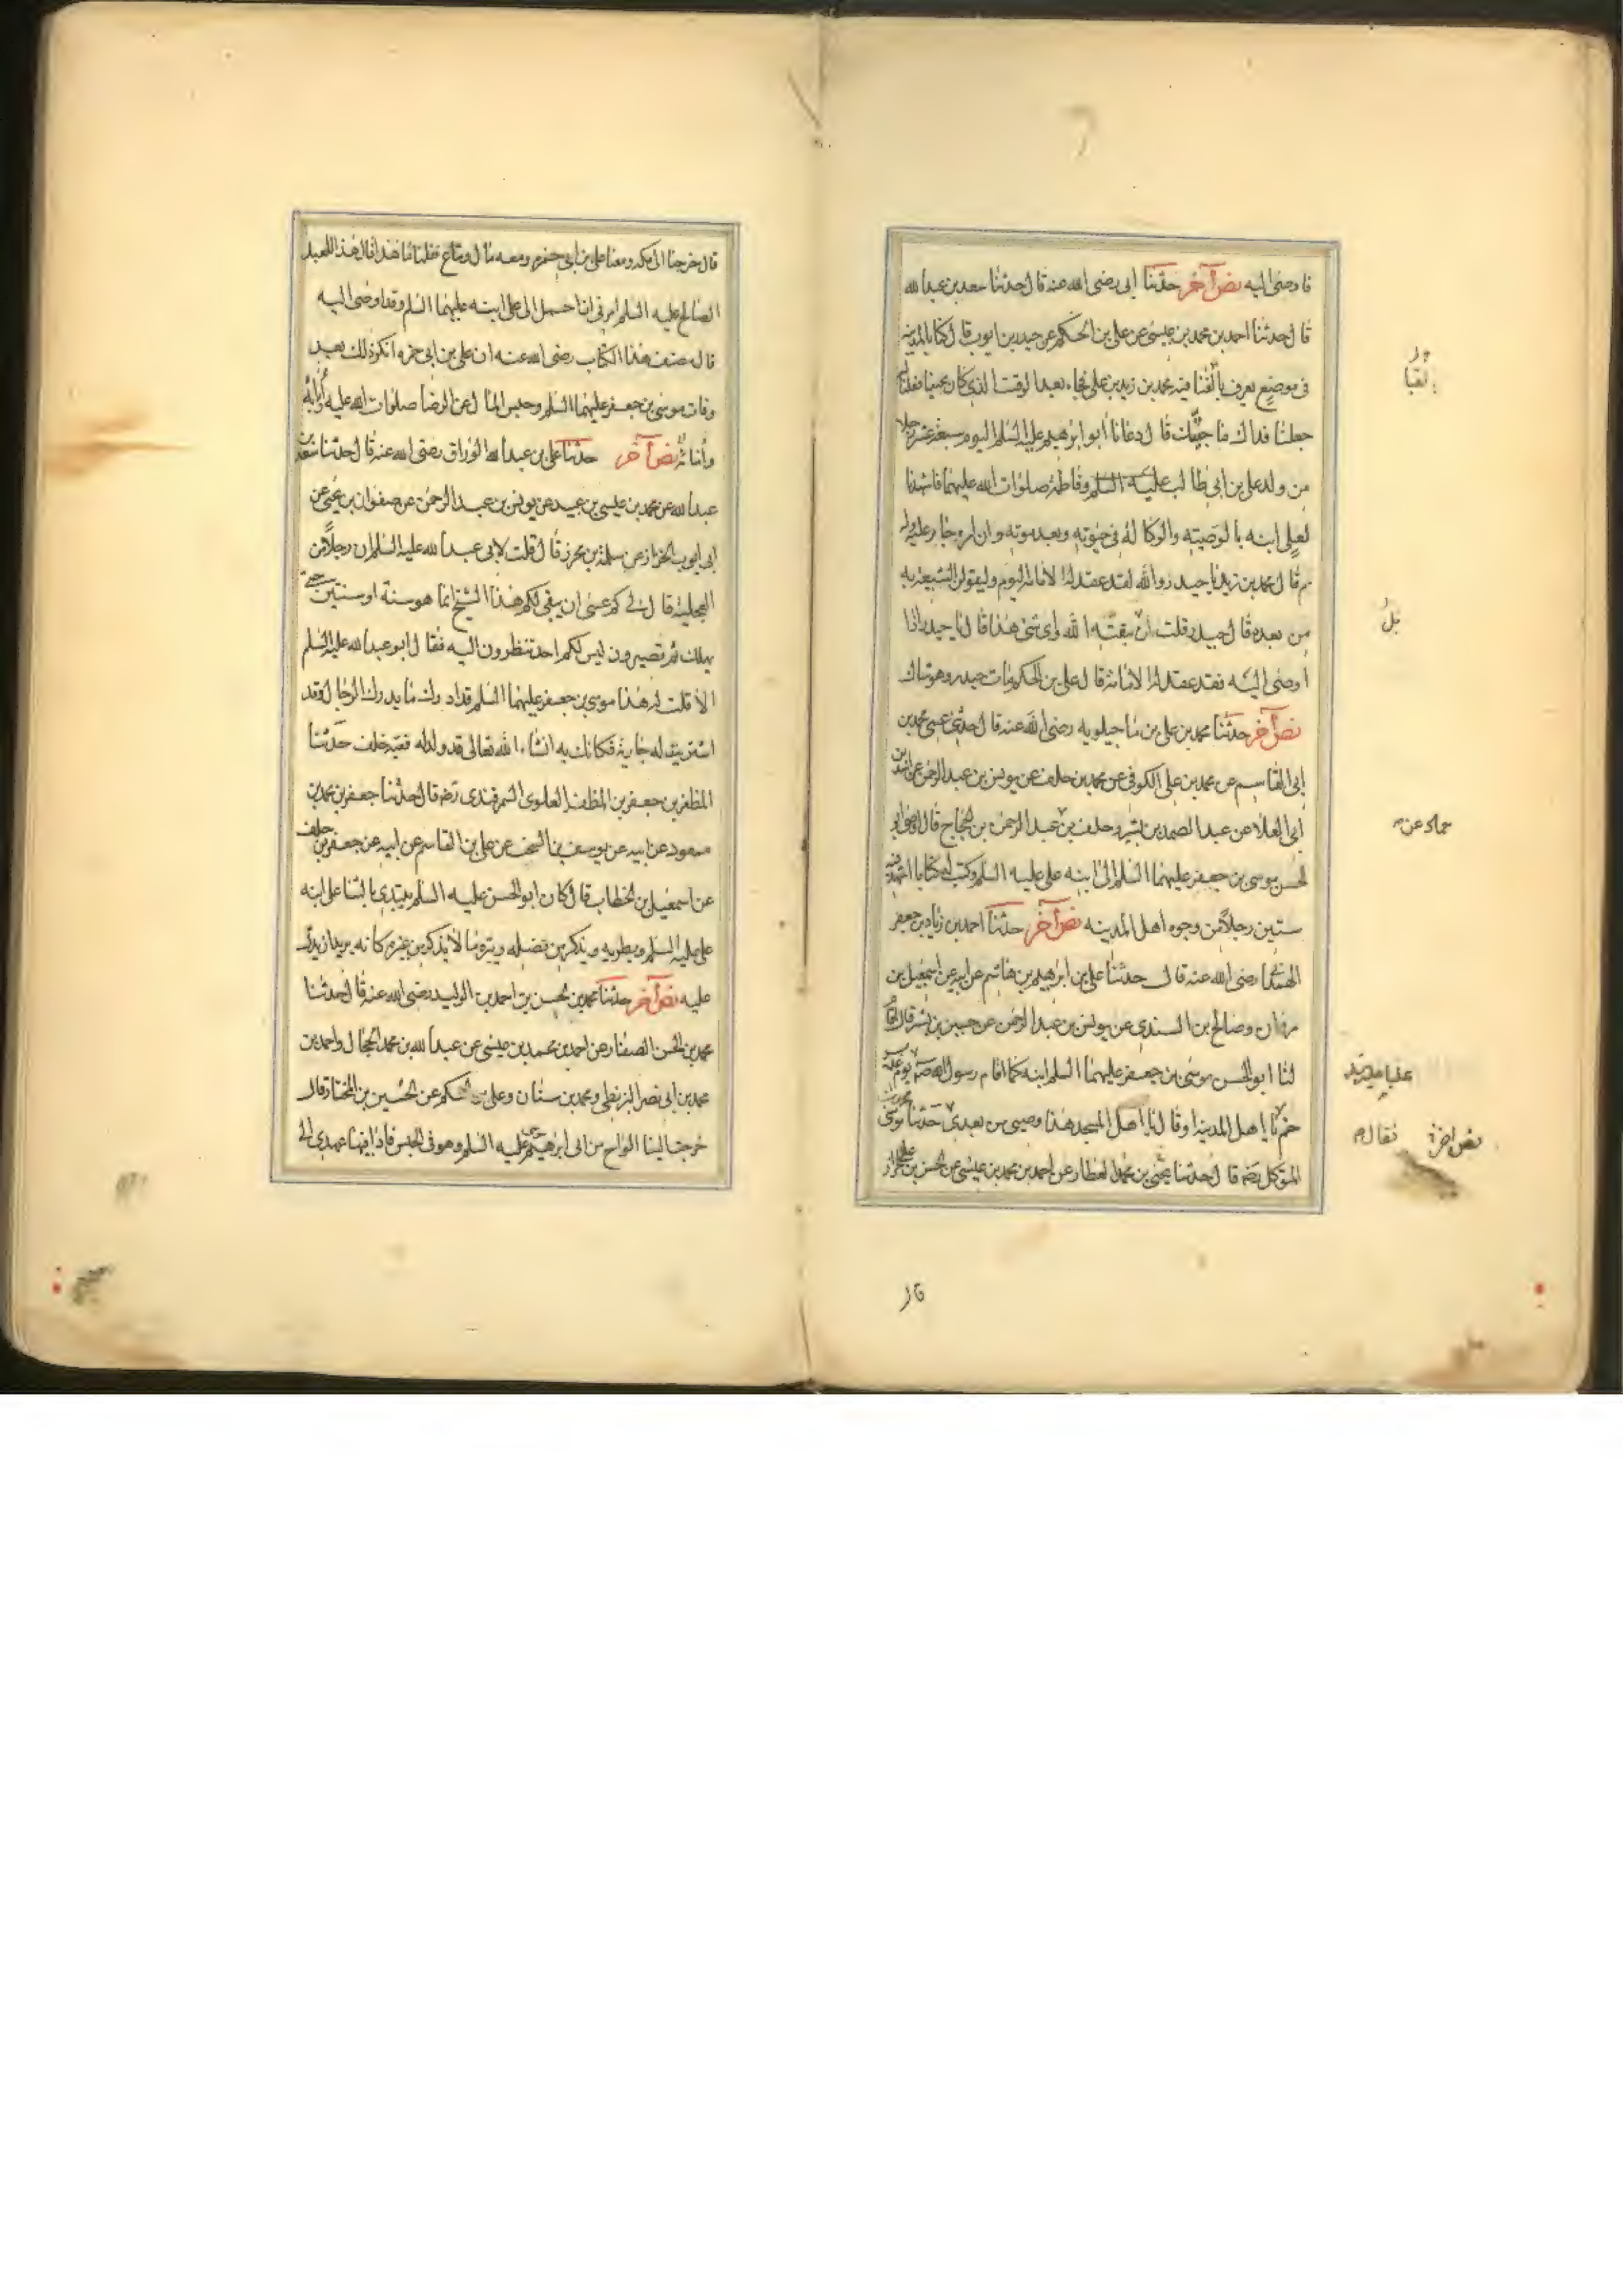 فاوصى اليه نص آخر حدثنا ابى رضى الله عنه قال حدثنا سعد بن عبد الله
قال حدثنا احمد بن محمد بن عيسى عن على بن الحكم عن حيدر بن ايوب قال كنا بالمدينه
فى موضع يعرف بالقبا فيه محمد بن زيد بن على فجاء بعد الوقت الذى كان يجيئنا فقلنا له
جعلنا فداك ما حبسك قال دعانا ابو ابرهيم عليه السلم اليوم سبعة عشر رجلا
من ولد على بن ابى طالب عليه السلم وفاطمة صلوات الله عليهما فاشهدنا
لعلى ابنه بالوصيته والوكالة فى حيوته وبعد موته وان امره جار عليه وله
ثم قال محمد بن زيد يا حيدر والله لقد عقد له الامامه اليوم وليقولن الشيعة به
من بعده قال حيدر قلت بل يبقيه الله واى شئ هذا قال يا حيدر اذا
اوصى اليه فقد عقد له الامامة قال على بن الحكم مات حيدر وهو شاك
نص آخر حدثنا محمد بن على بن ماجيلويه رضى الله عنه قال حدثنى عمى محمد بن
ابى القاسم عن محمد بن على الكوفى عن محمد بن خلف عن يونس بن عبد الرحمن عن اسد بن
ابى العلا عن عبد الصمد بن بشير وخلف بن عبد الرحمن بن الحجاج قال اوصى ابو
الحسن موسى بن جعفر عليهما السلم الى ابنه على عليه السلم وكتب له كتابا اشهد فيه
ستين رجلا من وجوه اهل المدينه نص آخر حدثنا احمد بن زياد بن جعفر
الهمدانى رضى الله عنه قال حدثنا على بن ابرهيم بن هاشم عن ابيه عن اسمعيل بن
مران وصالح بن السندى عن يونس بن عبد الرحمن عن حسين بن بشير قال اقام
لنا ابو الحسن موسى بن جعفر عليهما السلم ابنه كما اقام رسول الله ص يوم غدير
خم يا اهل المدينه او قال يا اهل المسجد هذا وصيى من بعدى حدثنا محمد بن موسى
المتوكل رضه قال حدثنا يحيى بن محمد العطار عن احمد بن محمد بن عيسى عن الحسن بن على الخزاز
بالقبا
بل
حماد عن
عليا
نص اخر
فقال
قال
قال خرجنا الى مكه ومعنا على بن ابى حمزه ومعه مال ومتاع فقلنا ما هذا قال هذا للعبد
الصالح عليه السلم امرنى ان احمله الى على ابنه عليهما السلم وقد اوصى اليه
قال مصنف هذا الكتاب رضى الله عنه ان على بن ابى حمزه انكر ذلك بعد
وفات موسى بن جعفر عليهما السلم وحبس المال عن الرضا صلوات الله عليه وآبائه
وأنبائه نص آخر حدثنا على بن عبد الله الوراق رضى الله عنه قال حدثنا سعد بن
عبد الله عن محمد بن عيسى بن عبيد عن يونس بن عبد الرحمن عن صفوان بن يحيى عن
ابى ايوب الخزاز عن سلمة بن محرز قال قلت لابى عبد الله عليه السلم ان رجلا من
العجلية قال لى كم عسى ان يبقى لكم هذا الشيخ انما هو سنة او سنتين حتى
يهلك ثم تصيرون ليس لكم احد تنظرون اليه فقال ابو عبد الله عليه السلم
الا قلت له هذا موسى بن جعفر عليهما السلم قد ادرك ما يدرك الرجال وقد
اشترينا له جارية فكانك به انشاء الله تعالى قد ولد له فقيه خلف حدثنا
المظفر بن جعفر بن المظفر العلوى السمرقندى رضه قال حدثنا جعفر بن محمد بن
مسعود عن ابيه عن يوسف بن السخت عن على بن القاسم عن ابيه عن جعفر بن خلف
عن اسمعيل بن الخطاب قال كان ابو الحسن عليه السلم يبتدى بالثنا على ابنه
على عليه السلم ويطريه ويذكر من فضله وبره ما لا يذكر من غيره كانه يريد ان يدل
عليه نص آخر حدثنا محمد بن الحسن بن احمد بن الوليد رضى الله عنه قال حدثنا
محمد بن الحسن الصفار عن احمد بن محمد بن عيسى عن عبد الله بن محمد الحجال واحمد بن
محمد بن ابى نصر البزنطى ومحمد بن سنان وعلى بن الحكم عن الحسين بن المختار قال
خرجت الينا الواح من ابى ابرهيم موسى عليه السلم وهو فى الحبس فاذا فيها عهدى الى